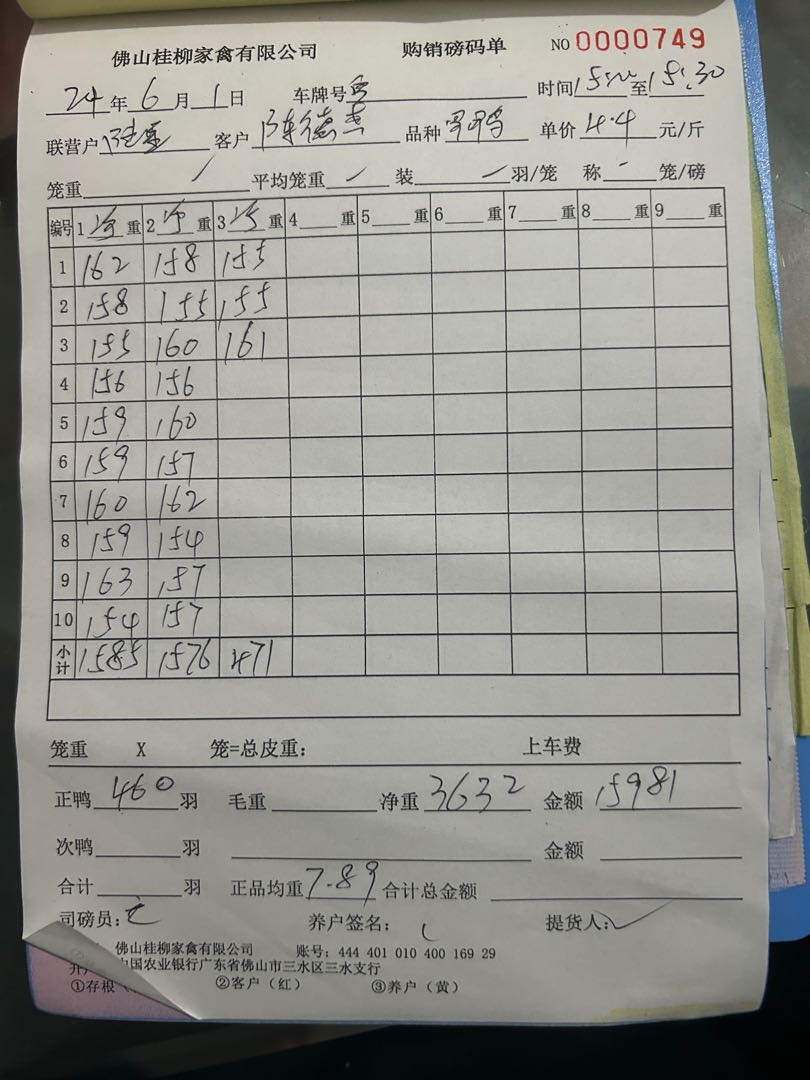 佛山桂柳家禽有限公司 购销磅码单 NO 0000749
24年6月1日 车牌号 时间15:00至15:30
联营户 客户 陈德志 品种 单价4.4元/斤
笼重 / 平均笼重 / 装 / 羽/笼 称 - 笼/磅
编号 1 重 2 重 3 重 4 重 5 重 6 重 7 重 8 重 9 重
1 162 158 155
2 158 155 155
3 155 160 161
4 156 156
5 159 160
6 159 157
7 160 162
8 159 154
9 163 157
10 154 157
小计 1585 1576 471
笼重 X 笼=总皮重: 上车费
正鸭 460 羽 毛重 净重 3632 金额 15981
次鸭 羽 金额
合计 羽 正品均重 7.89 合计总金额
司磅员: 养户签名: 提货人:
佛山桂柳家禽有限公司 账号: 444 401 010 400 169 29
国农业银行广东省佛山市三水区三水支行
①存根( ②客户(红) ③养户(黄)